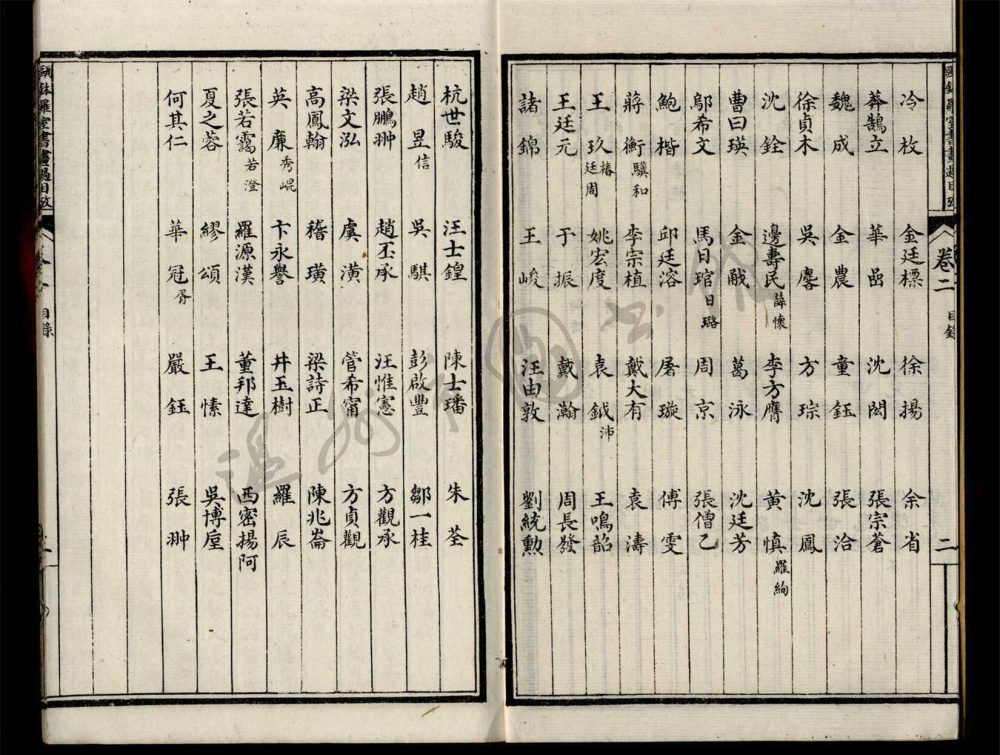 卷二 目錄 二
冷枚 金廷標 徐揚 余省
莽鵠立 華嵒 沈閎 張宗蒼
魏成 金農 童鈺 張洽
徐貞木 吳麐 方琮 沈鳳
沈銓 邊壽民 薛懷 李方膺 黃慎 羅絢
曹曰瑛 金戩 葛泳 沈廷芳
鄔希文 馬日琯 日璐 周京 張僧乙
鮑楷 邱廷溶 屠璇 傅雯
蔣衡 驥 和 李宗植 戴大有 袁濤
王玖 椿 廷周 姚宏度 袁鉞 沛 王鳴韶
王廷元 于振 戴瀚 周長發
諸錦 王峻 汪由敦 劉統勳
杭世駿 汪士鍠 陳士璠 朱荃
趙昱 信 吳騏 彭啟豐 鄒一桂
張鵬翀 趙丕承 汪惟憲 方觀承
梁文泓 虞潢 管希甯 方貞觀
高鳳翰 嵇璜 梁詩正 陳兆崙
英廉 秀崐 卞永譽 井玉樹 羅辰
張若靄 若澄 羅源漢 董邦達 西密揚阿
夏之蓉 繆頌 王愫 吳博垕
何其仁 華冠 胥 嚴鈺 張翀
甌鉢羅室書畫過目攷
目錄